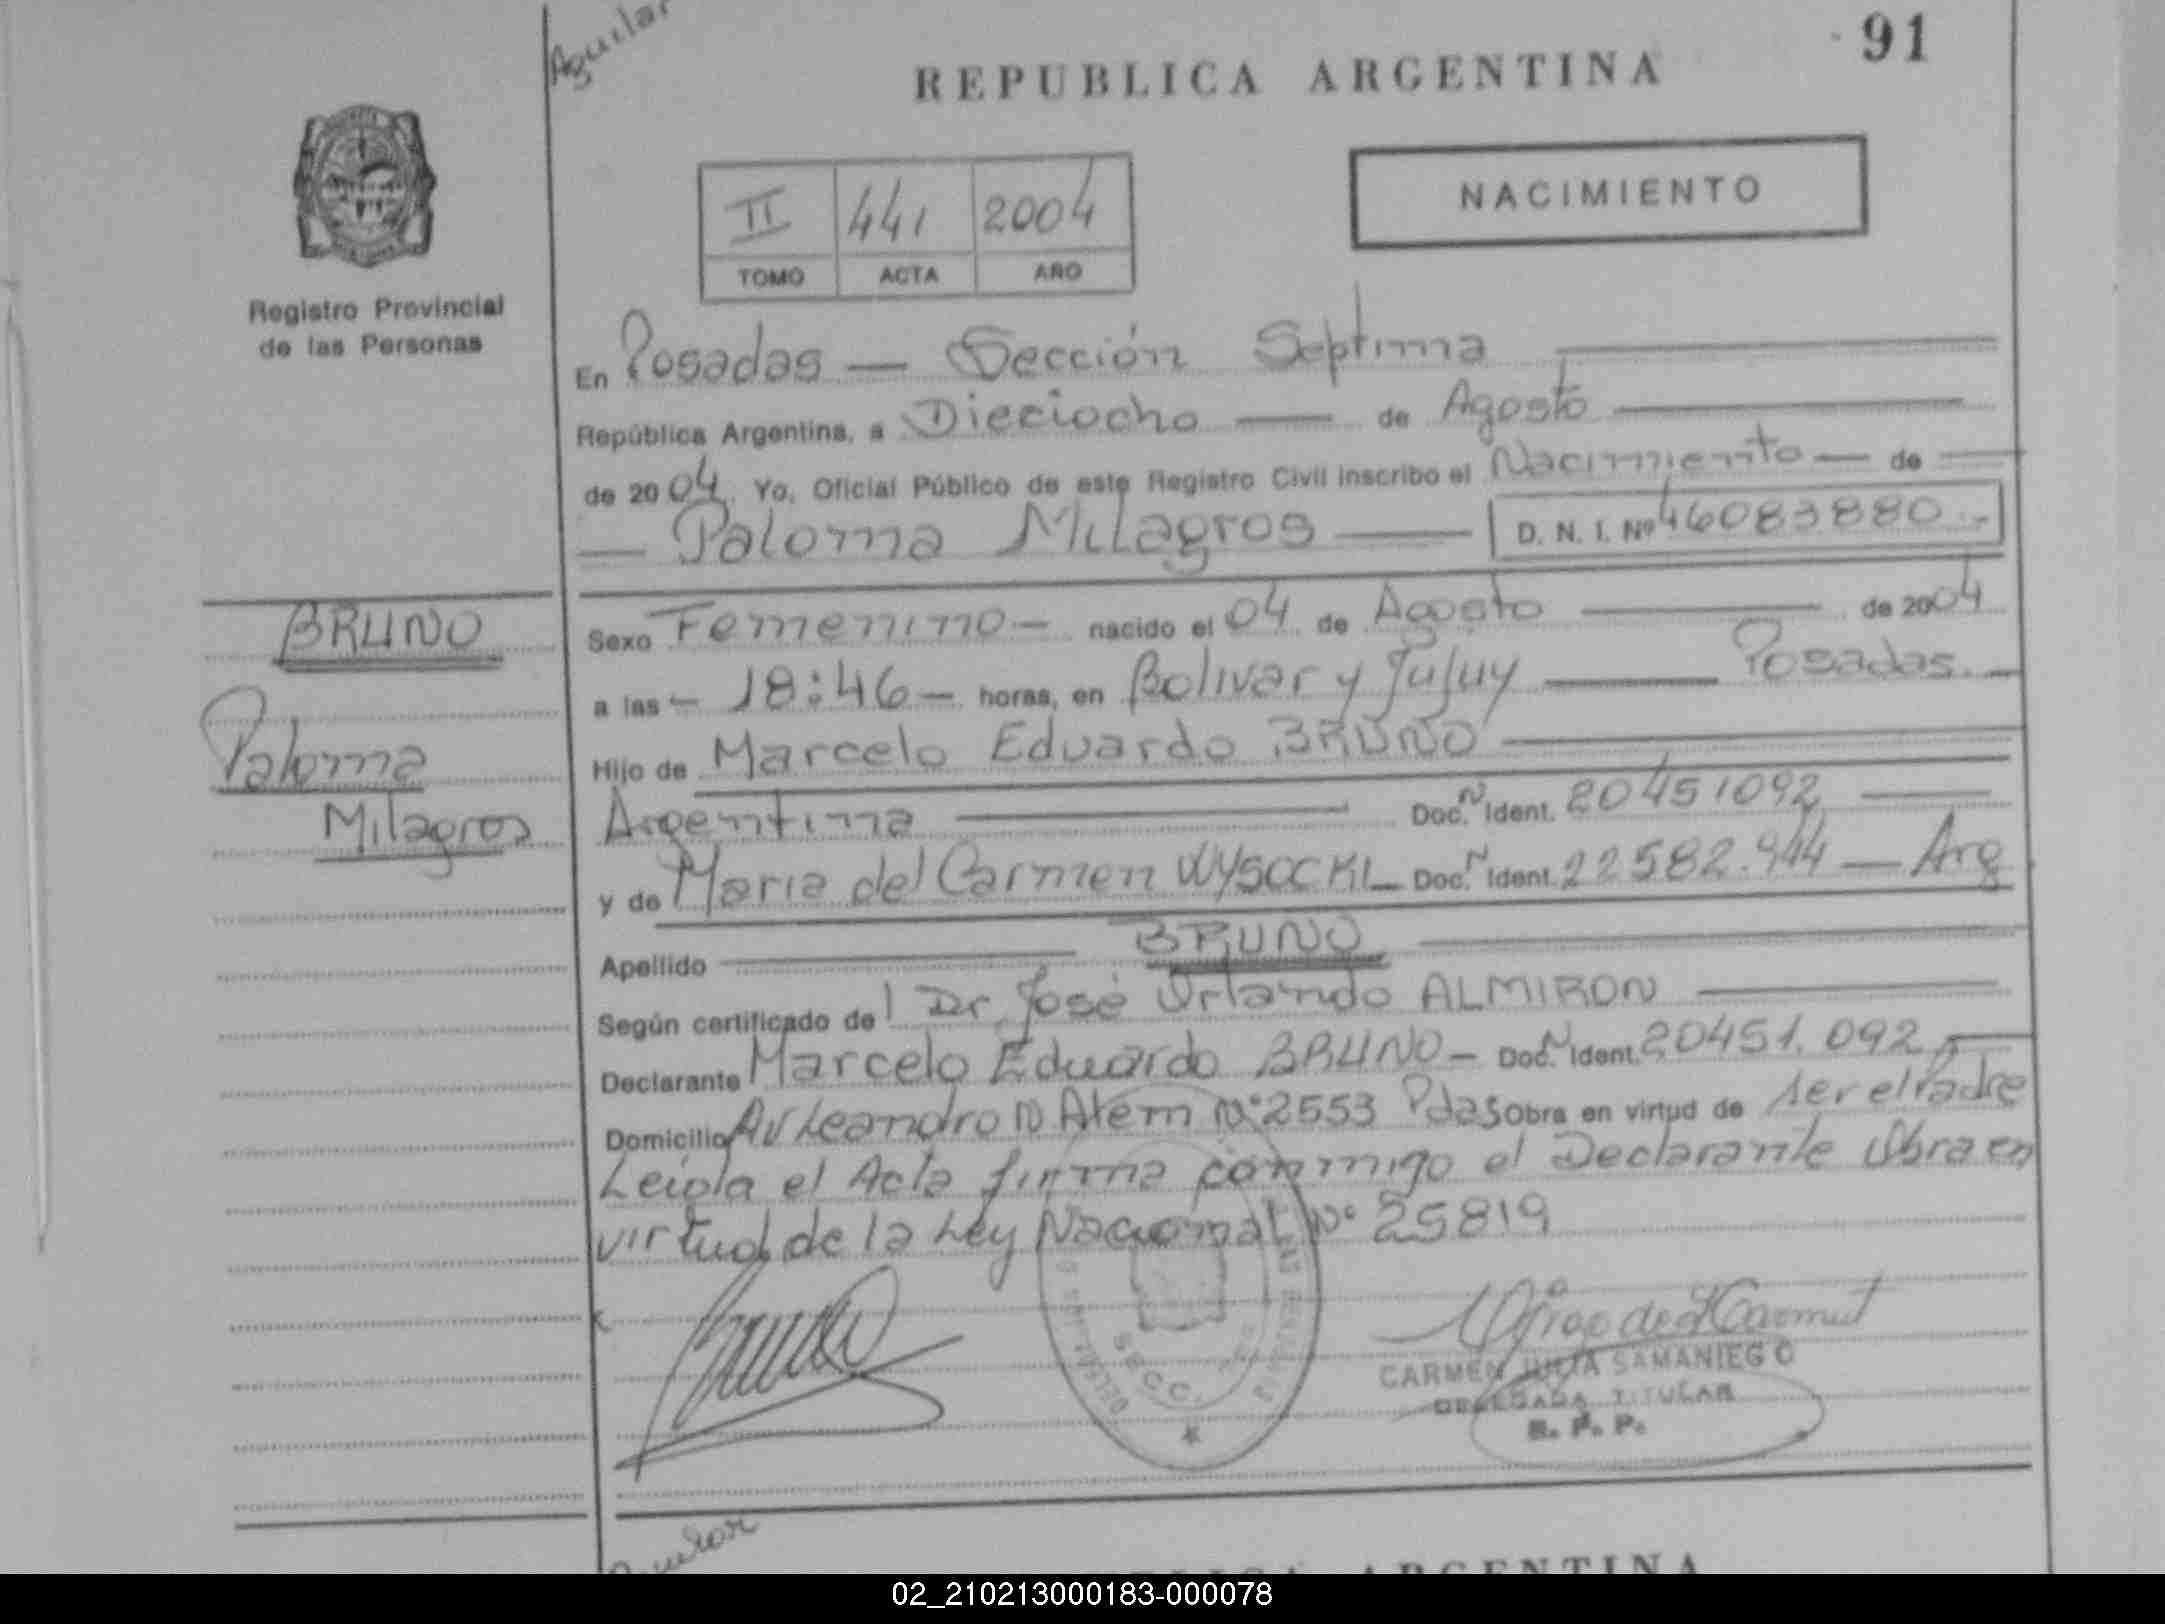 Aguilar
91
REPUBLICA ARGENTINA
NACIMIENTO
II 441 2004
TOMO ACTA AÑO
Registro Provincial
de las Personas
En Posadas — Sección Septima
República Argentina, a Dieciocho — de Agosto
de 2004 Yo, Oficial Público de este Registro Civil inscribo el Nacimiento — de
— Paloma Milagros — D. N. I. Nº 46083880.-
BRUNO
Paloma
Milagros
Sexo Femenino — nacido el 04 de Agosto — de 2004
a las — 18:46 — horas, en Bolivar y Jujuy — Posadas. —
Hijo de Marcelo Eduardo BRUNO
Argentina — Doc. N Ident. 20451092 —
y de Maria del Carmen WYSOCKI — Doc. N Ident. 22582.944 — Arg
Apellido — BRUNO
Según certificado de l Dr José Orlando ALMIRON
Declarante Marcelo Eduardo BRUNO — Doc. N Ident. 20451.092
Domicilio Av Leandro N Alem Nº 2553 Pdas Obra en virtud de ser el Padre
Leida el Acta firma conmigo el Declarante Obra en
virtud de la Ley Nacional Nº 25819
SECC.
CARMEN JULIA SAMANIEGO
DELEGADA TITULAR
R. P. P.
ARGENTINA
02_210213000183-000078